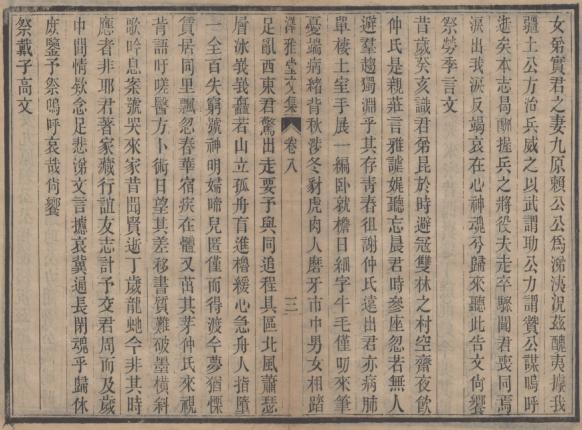 女弟實君之妻九原賴公公爲涕洟況茲醜夷擾我
疆土公方治兵威之以武謂助公力謂贊公謀嗚呼
逝矣本志曷酬握兵之將役夫走卒驟聞君喪同焉
淚出我淚反竭哀在心神魂兮歸來聽此告文尚饗
祭勞季言文
昔歲癸亥識君弟昆於時避寇雙林之村空齋夜飲
仲氏是親莊言雅謔娓聽忘晨君時參座忽若無人
避羣趨獨淵乎其存青春徂謝仲氏遠出君亦病肺
單棲土室手展一編臥就檐日細字牛毛僅吻來筆
憂端病緒背秋涉冬豺虎肉人磨牙市中男女相蹈
澤雅堂文集 卷八 三
足亂西東君驚出走要予與同追程具區北風蕭瑟
層冰峩峩矗若山立孤舟首進櫓緩心急舟人指墮
一全百失窮號神明孀啼兒匿僅而得渡今夢猶慄
賃居同里飄忽春華宿疾在髓又茁其芽仲氏來視
背語吁嗟醫方卜術日望其差移書質難破墨橫斜
歌吟息案號哭來家昔聞賢逝丁歲龍虵今非其時
應者非耶君著家藏行誼友志計予交君周而及歲
中間情欸念足悲涕文言攄哀冀逼長閉魂乎歸休
庻鑒予祭嗚呼哀哉尚饗
祭戴子高文